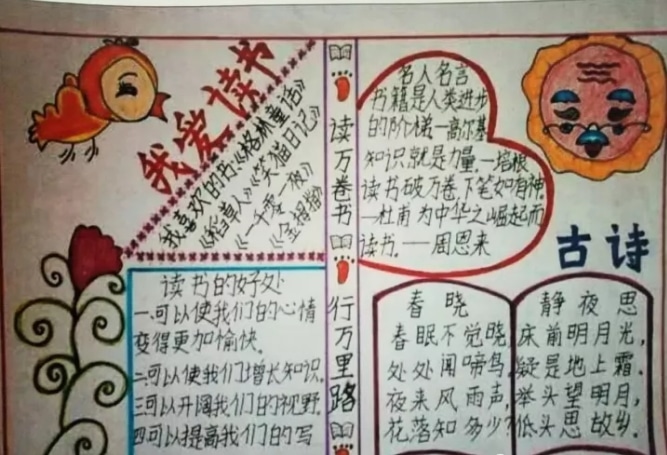 我爱读书
我喜欢的书《格林童话》
《稻草人》《笑猫日记》
《一千零一夜》
读书的好处
一可以使我们的心情
变得更加愉快。
二可以使我们增长知识。
三可以开阔我们的视野.
四可以提高我们的写
读万卷书
行万里路
名人名言
书籍是人类进步
的阶梯—高尔基
知识就是力量.—培根
读书破万卷下笔如有神.
—杜甫为中华之崛起而
读书.——周恩来
古诗
春晓
春眠不觉晓,
处处闻啼鸟,
夜来风雨声,
花落知多少?
静夜思
床前明月光,
疑是地上霜.
举头望明月,
低头思故乡.